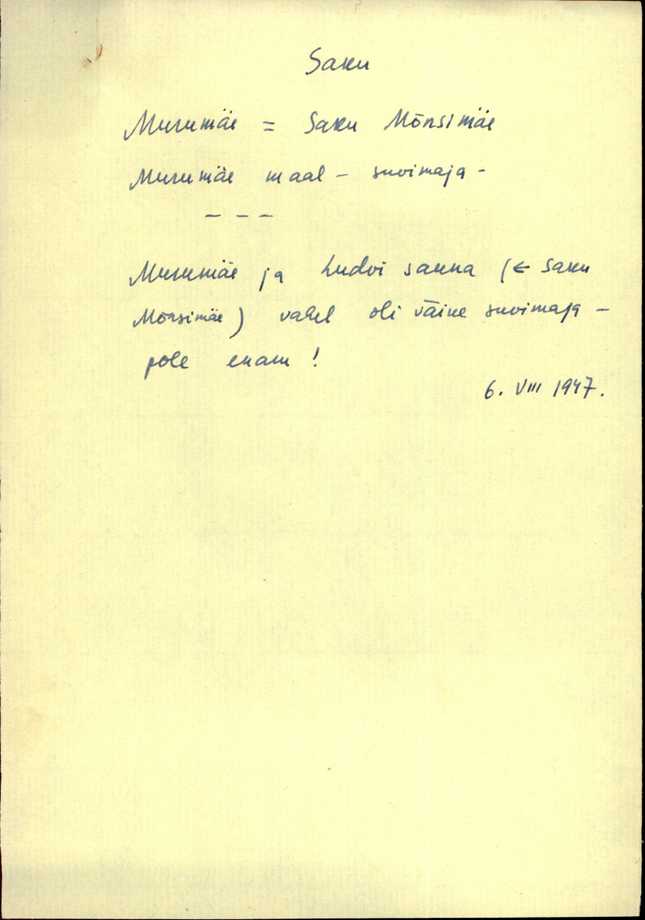 Saku
Murumäe = Saku Mõnsimäe
Murumäe maal – suvimaja -
– – –
Murumäe ja Ludvi sauna (← Saku
Mõnsimäe) vahel oli väike suvimaja –
pole enam!
6. VIII 1947.